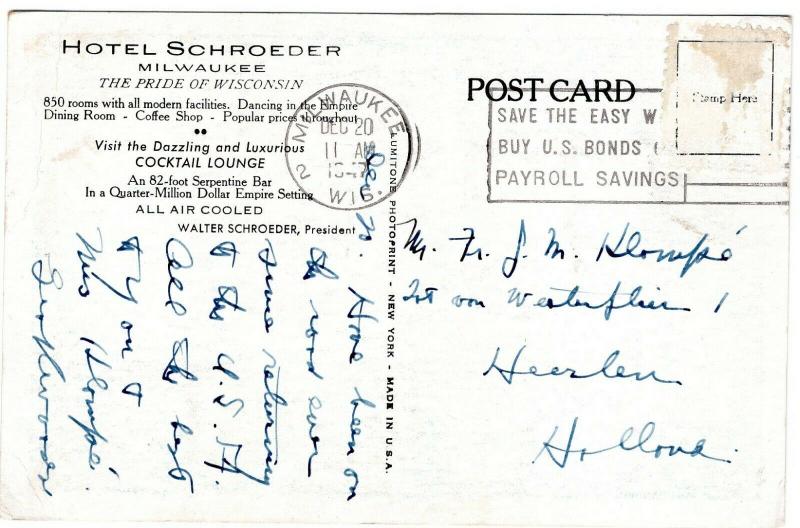 HOTEL SCHROEDER
MILWAUKEE
THE PRIDE OF WISCONSIN
850 rooms with all modern facilities. Dancing in the Empire
Dining Room - Coffee Shop - Popular prices throughout
••
Visit the Dazzling and Luxurious
COCKTAIL LOUNGE
An 82-foot Serpentine Bar
In a Quarter-Million Dollar Empire Setting
ALL AIR COOLED
WALTER SCHROEDER, President
MILWAUKEE
2
DEC 20
11 AM
1947
WIS.
POST CARD
SAVE THE EASY W
BUY U.S. BONDS
PAYROLL SAVINGS
Stamp Here
LUMITONE PHOTOPRINT - NEW YORK - MADE IN U.S.A.
Dec 20. Have been on
the road ever
since returning
to the U.S.A.
All the best
to you &
Mrs Klompé.
Mr. Fr. J. M. Klompé
von 1
Heerlen
Holland.